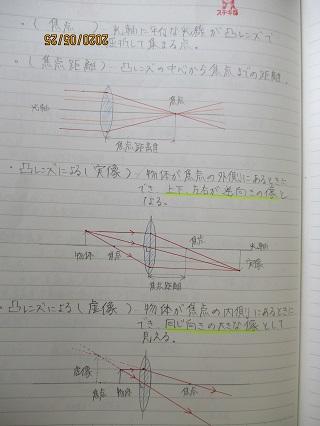 ステキ部
・(焦点) 光軸に平行な光線が凸レンズで
屈折して集まる点。
2020/05/25
・(焦点距離)‥凸レンズの中心から焦点までの距離。
焦点
光軸
焦点距離
・凸レンズによる(実像)‥物体が焦点の外側にあるときに
でき、上下、左右が逆向きの像と
なる。
焦点
光軸
物体
焦点
実像
焦点距離
・凸レンズによる(虚像)‥物体が焦点の内側にあるときに
でき、同じ向きの大きな像として
見える。
虚像
焦点
物体
焦点